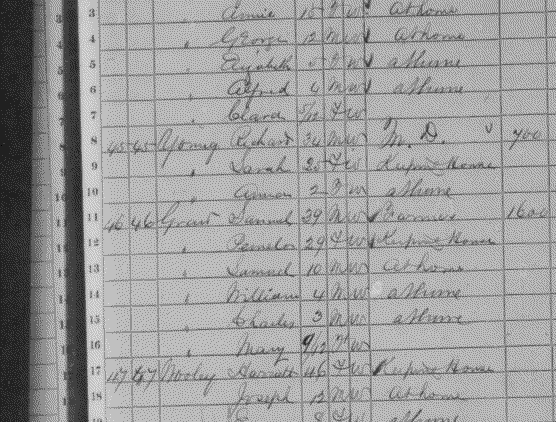 3 " Annie 15 F W At home
4 " George 12 M W At home
5 " Elizabeth F W at home
6 " Alfred M W at home
7 " Clara F W
8 45 45 Young Richard 34 M W M. D. 700
9 " Sarah F W Keeping House
10 " 2 F W at home
11 46 46 Grant Samuel 39 M W Farmer
12 " Pamelia 29 F W Keeping House
13 " Samuel 10 M W At home
14 " William 4 M W at home
15 " Charles 3 M W at home
16 " Mary 9/12 F W
17 47 47 Wooley Harriett 46 F W Keeping House
18 Joseph 12 M W At home
F W at home